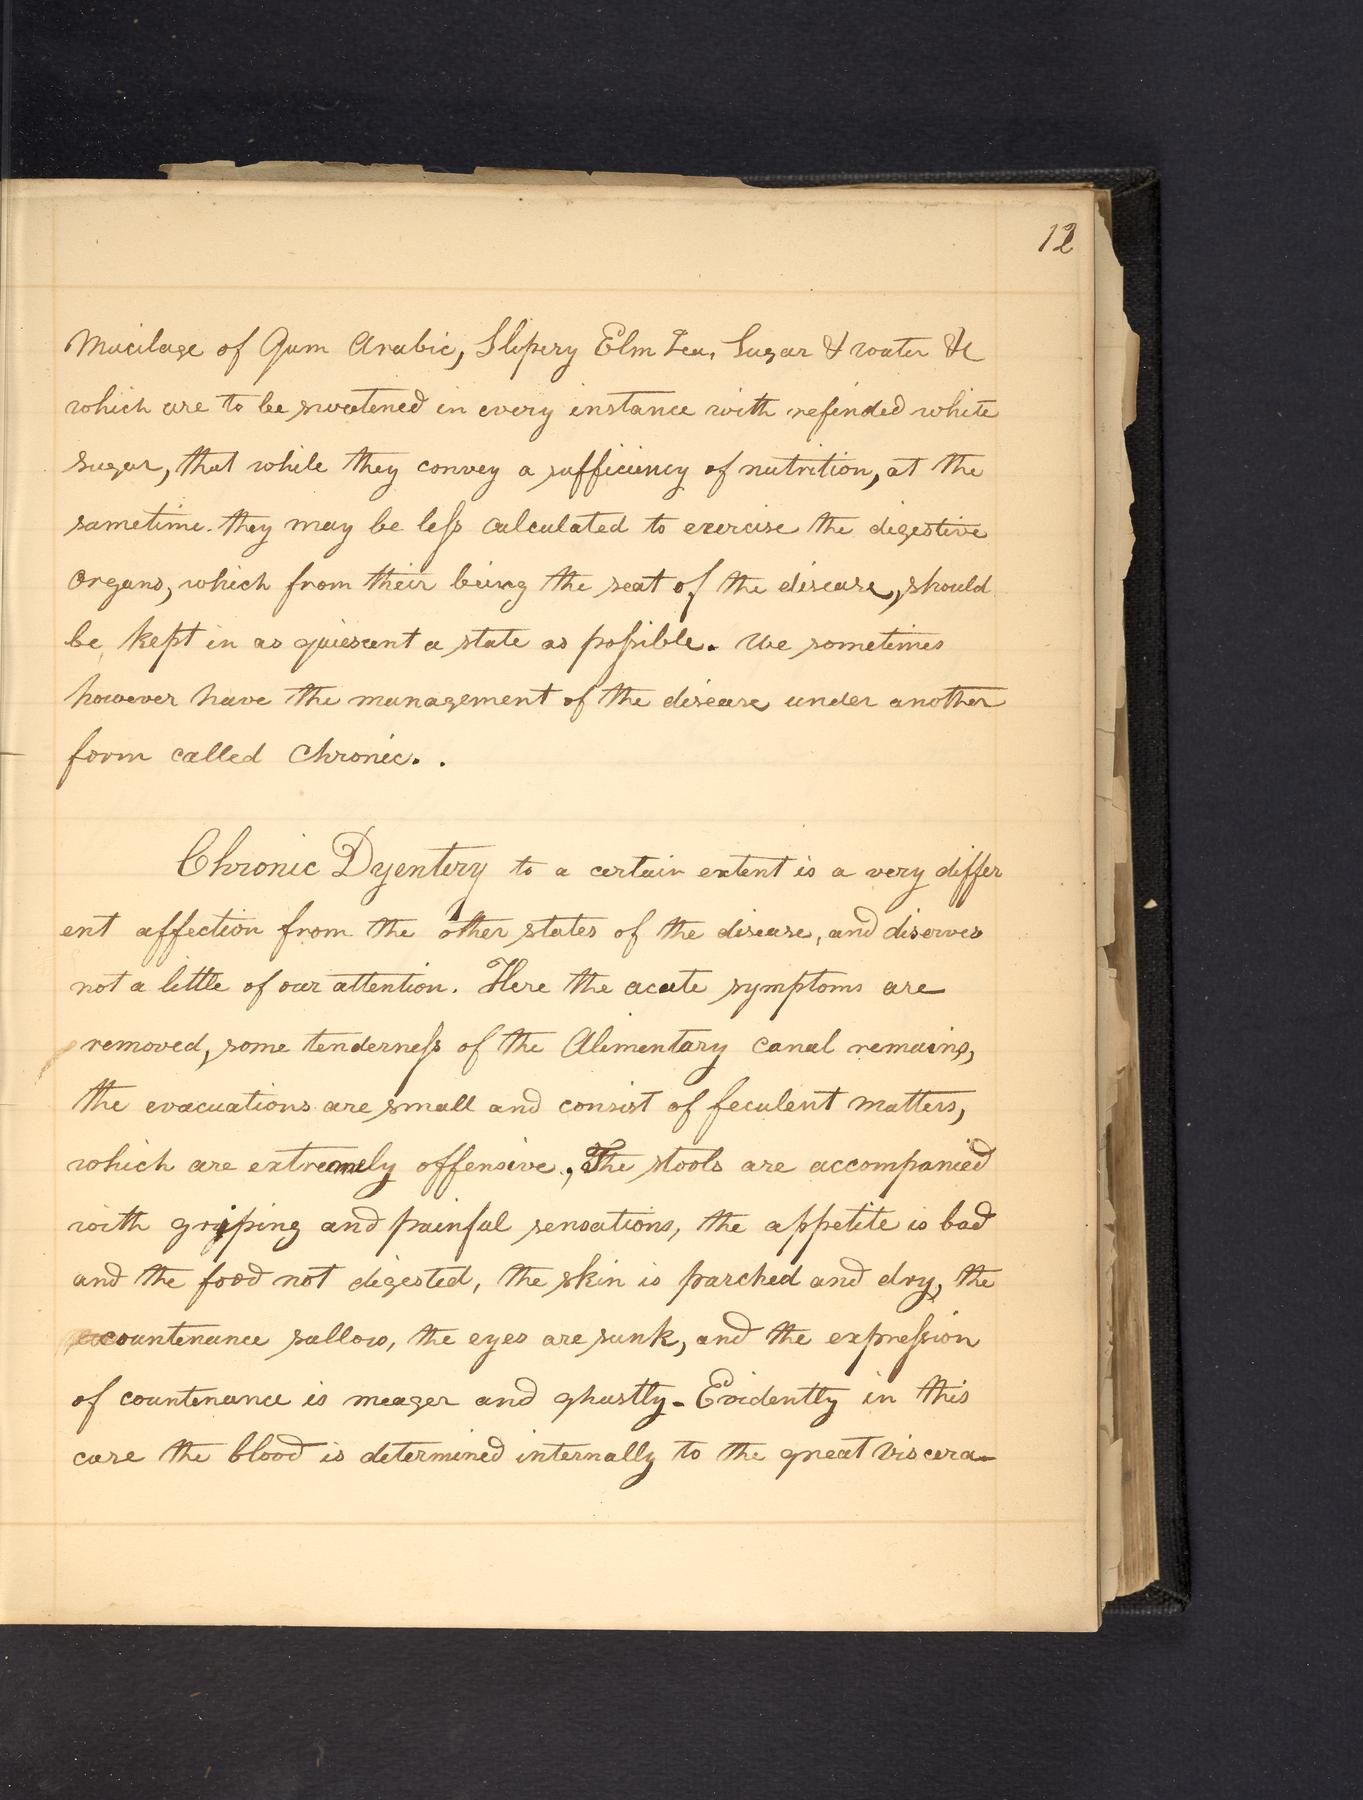 12
Mucilage of Gum Arabic, Slipery Elm Tea, Sugar & water &c
which are to be sweetened in every instance with refinded white
sugar, that while they convey a sufficiency of nutrition, at the
sametime they may be less calculated to exercise the digestive
organs, which from their being the seat of the disease, should
be kept in as quiescent a state as possible. We sometimes
however have the management of the disease under another
form called Chronic. .
Chronic Dyentery to a certain extent is a very differ
ent affection from the other states of the disease, and diserves
not a little of our attention. Here the acute symptoms are
removed, some tenderness of the Alimentary canal remains,
the evacuations are small and consist of feculent matters,
which are extremely offensive., The stools are accompanied
with griping and painful sensations, the appetite is bad
and the food not digested, the skin is parched and dry, the
countenance sallow, the eyes are sunk, and the expression
of countenance is meager and ghastly - Evidently in this
case the blood is determined internally to the great viscera-